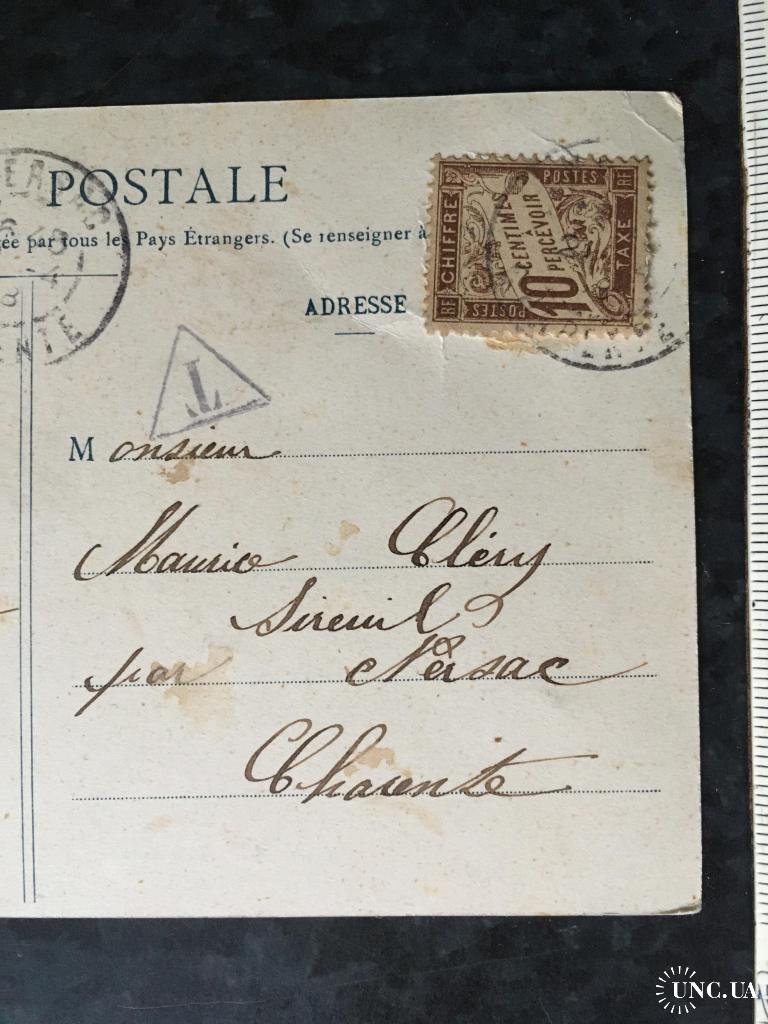 POSTALE
ée par tous les Pays Étrangers. (Se renseigner à
ADRESSE
RF CHIFFRE
POSTES RF
10 CENTIMES
À
PERCEVOIR
TAXE
RF POSTES
T
Monsieur
Maurice Cléry
Sireuil
par Nersac
Charente
UNC.UA